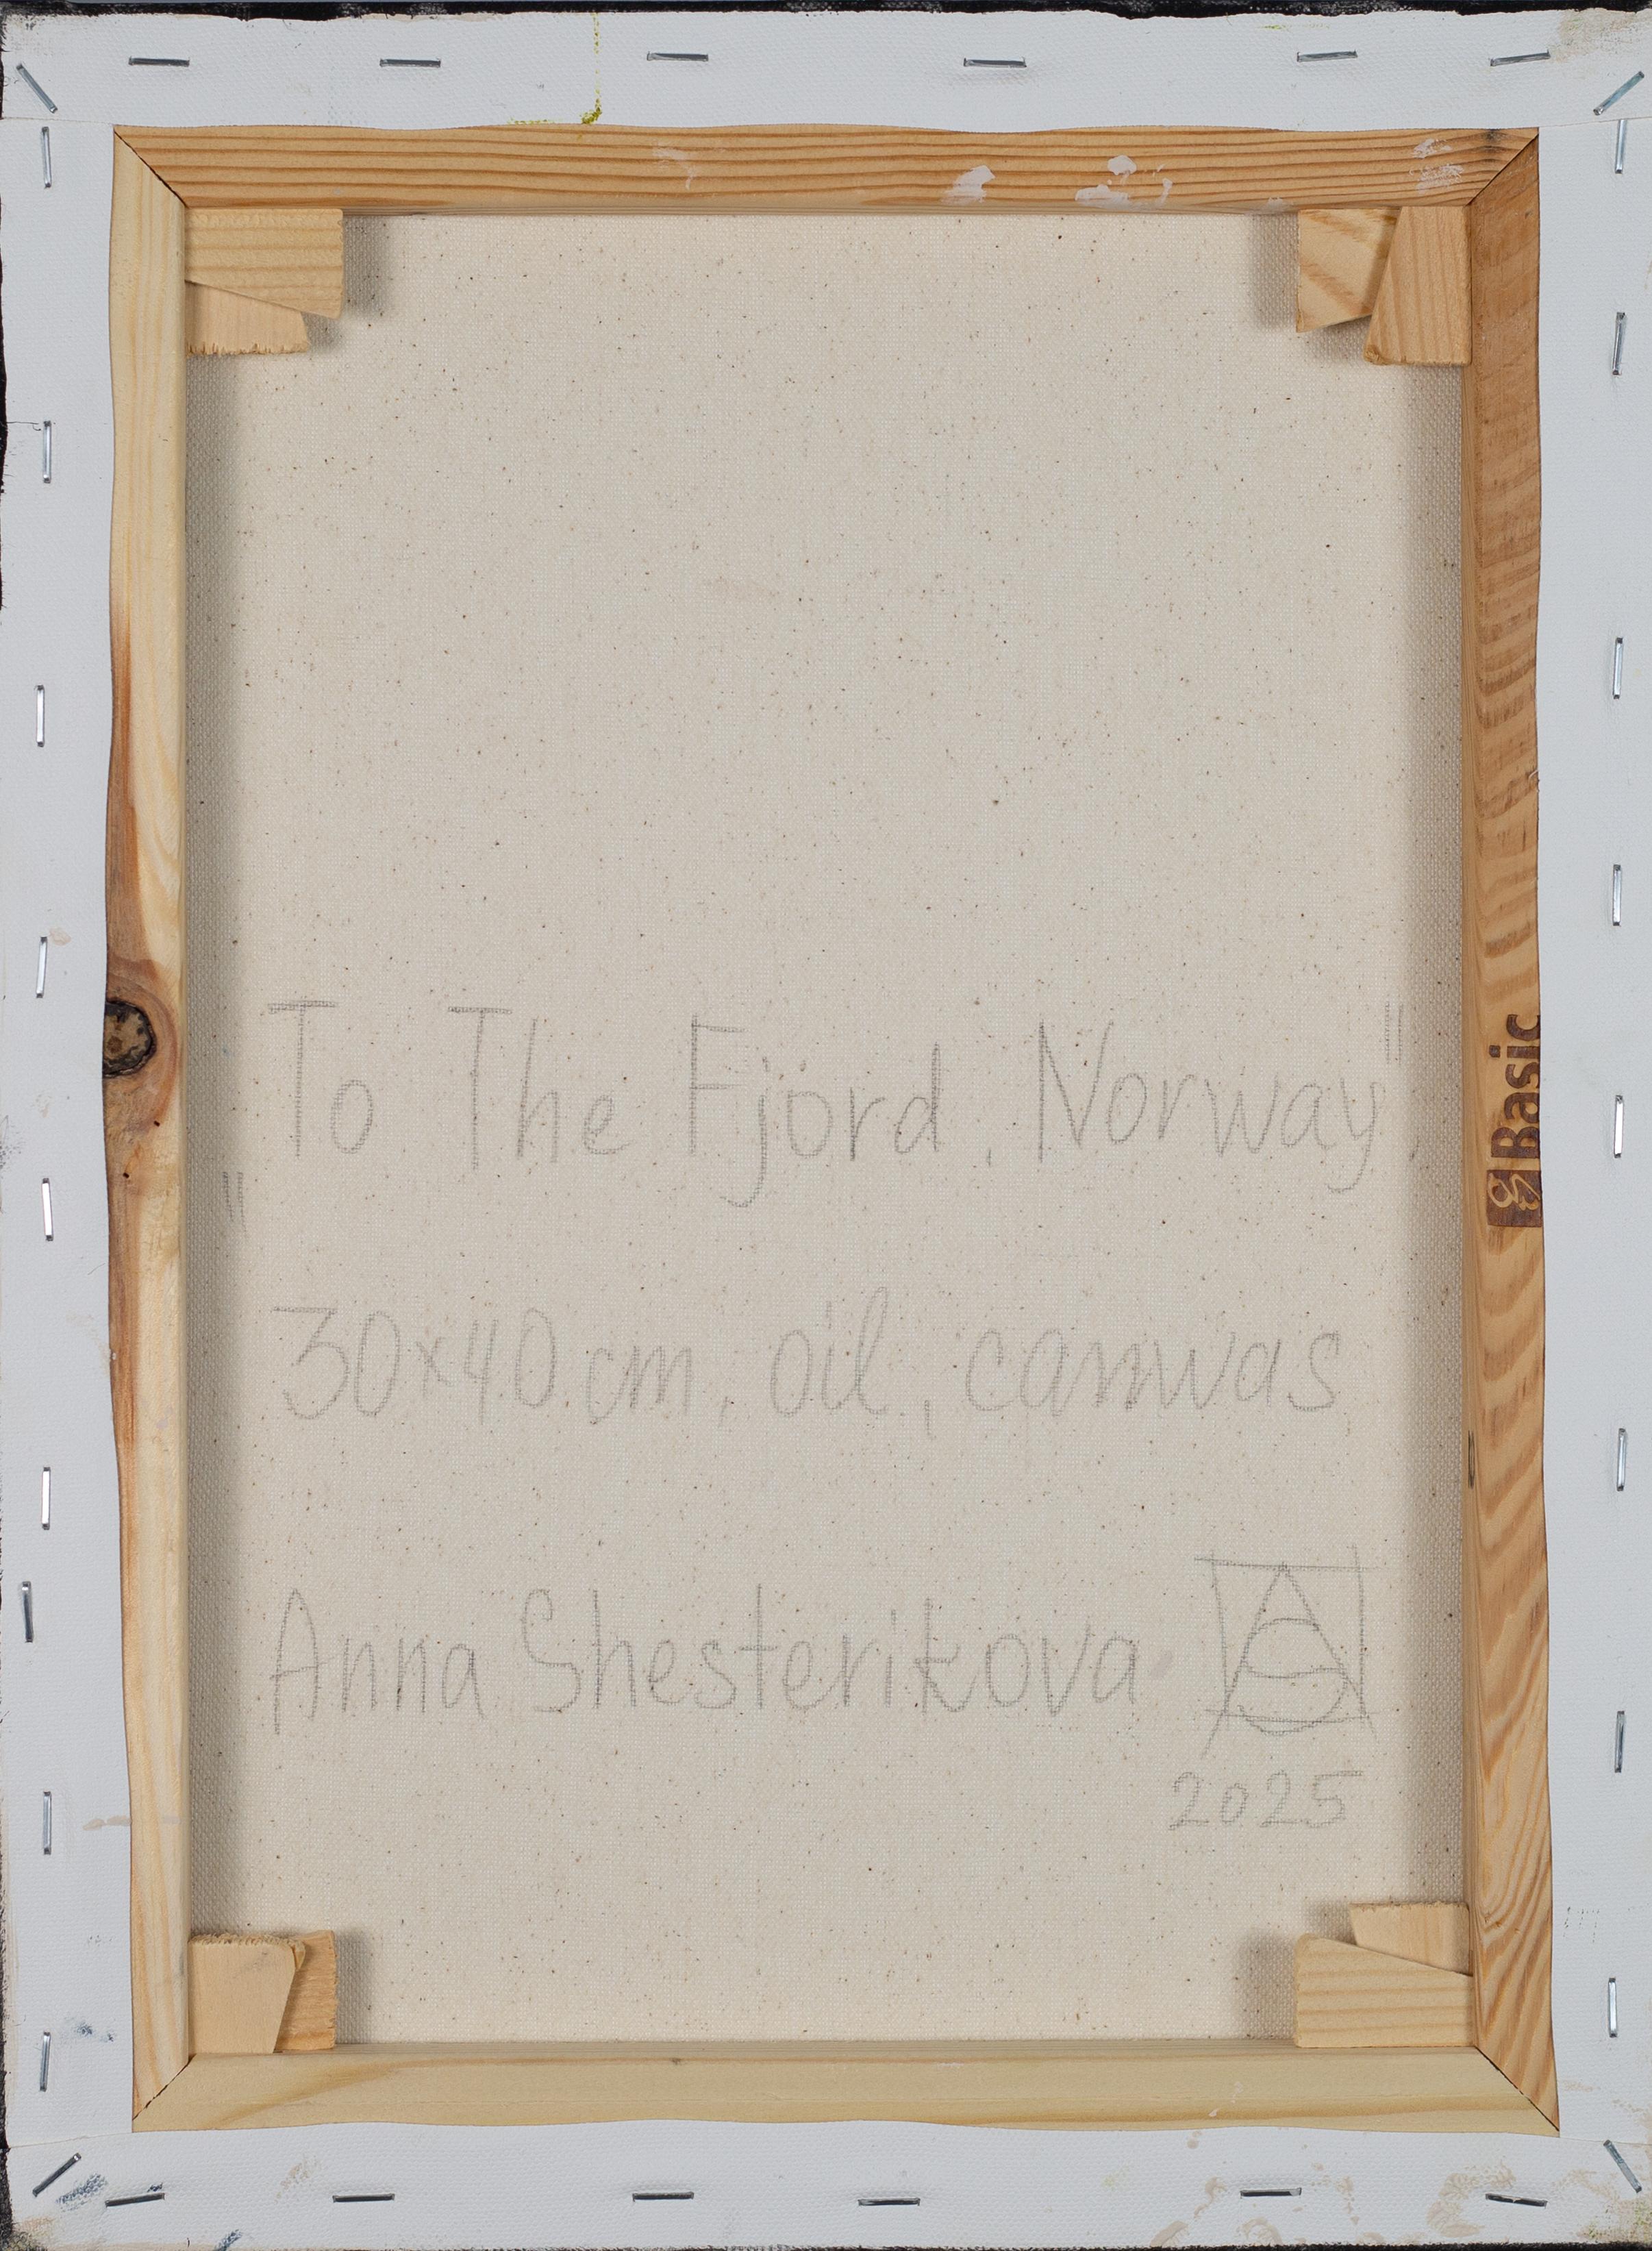 "To The Fjord, Norway"
30x40 cm, oil, canvas
Anna Shesterikova
2025
Basic